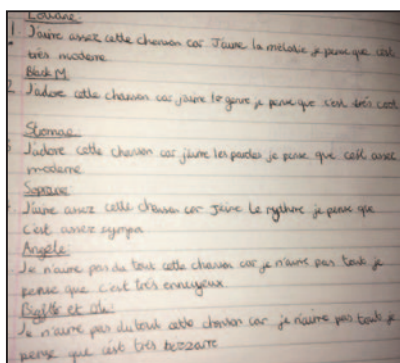 Louane:
1. J'aime assez cette chanson car J'aime la mélodie je pense que c'est
très moderne
Black M
2 J'adore cette chanson car j'aime le genre je pense que c'est très cool
Stromae
J'adore cette chanson car j'aime les paroles je pense que c'est assez
moderne
Soprano
J'aime assez cette chanson car J'aime le rythme je pense que
c'est assez sympa
Angèle:
Je n'aime pas du tout cette chanson car je n'aime pas tout je
pense que c'est très ennuyeux
Bigflo et Oli:
Je n'aime pas du tout cette chanson car je n'aime pas tout je
pense que c'est très bezzarre